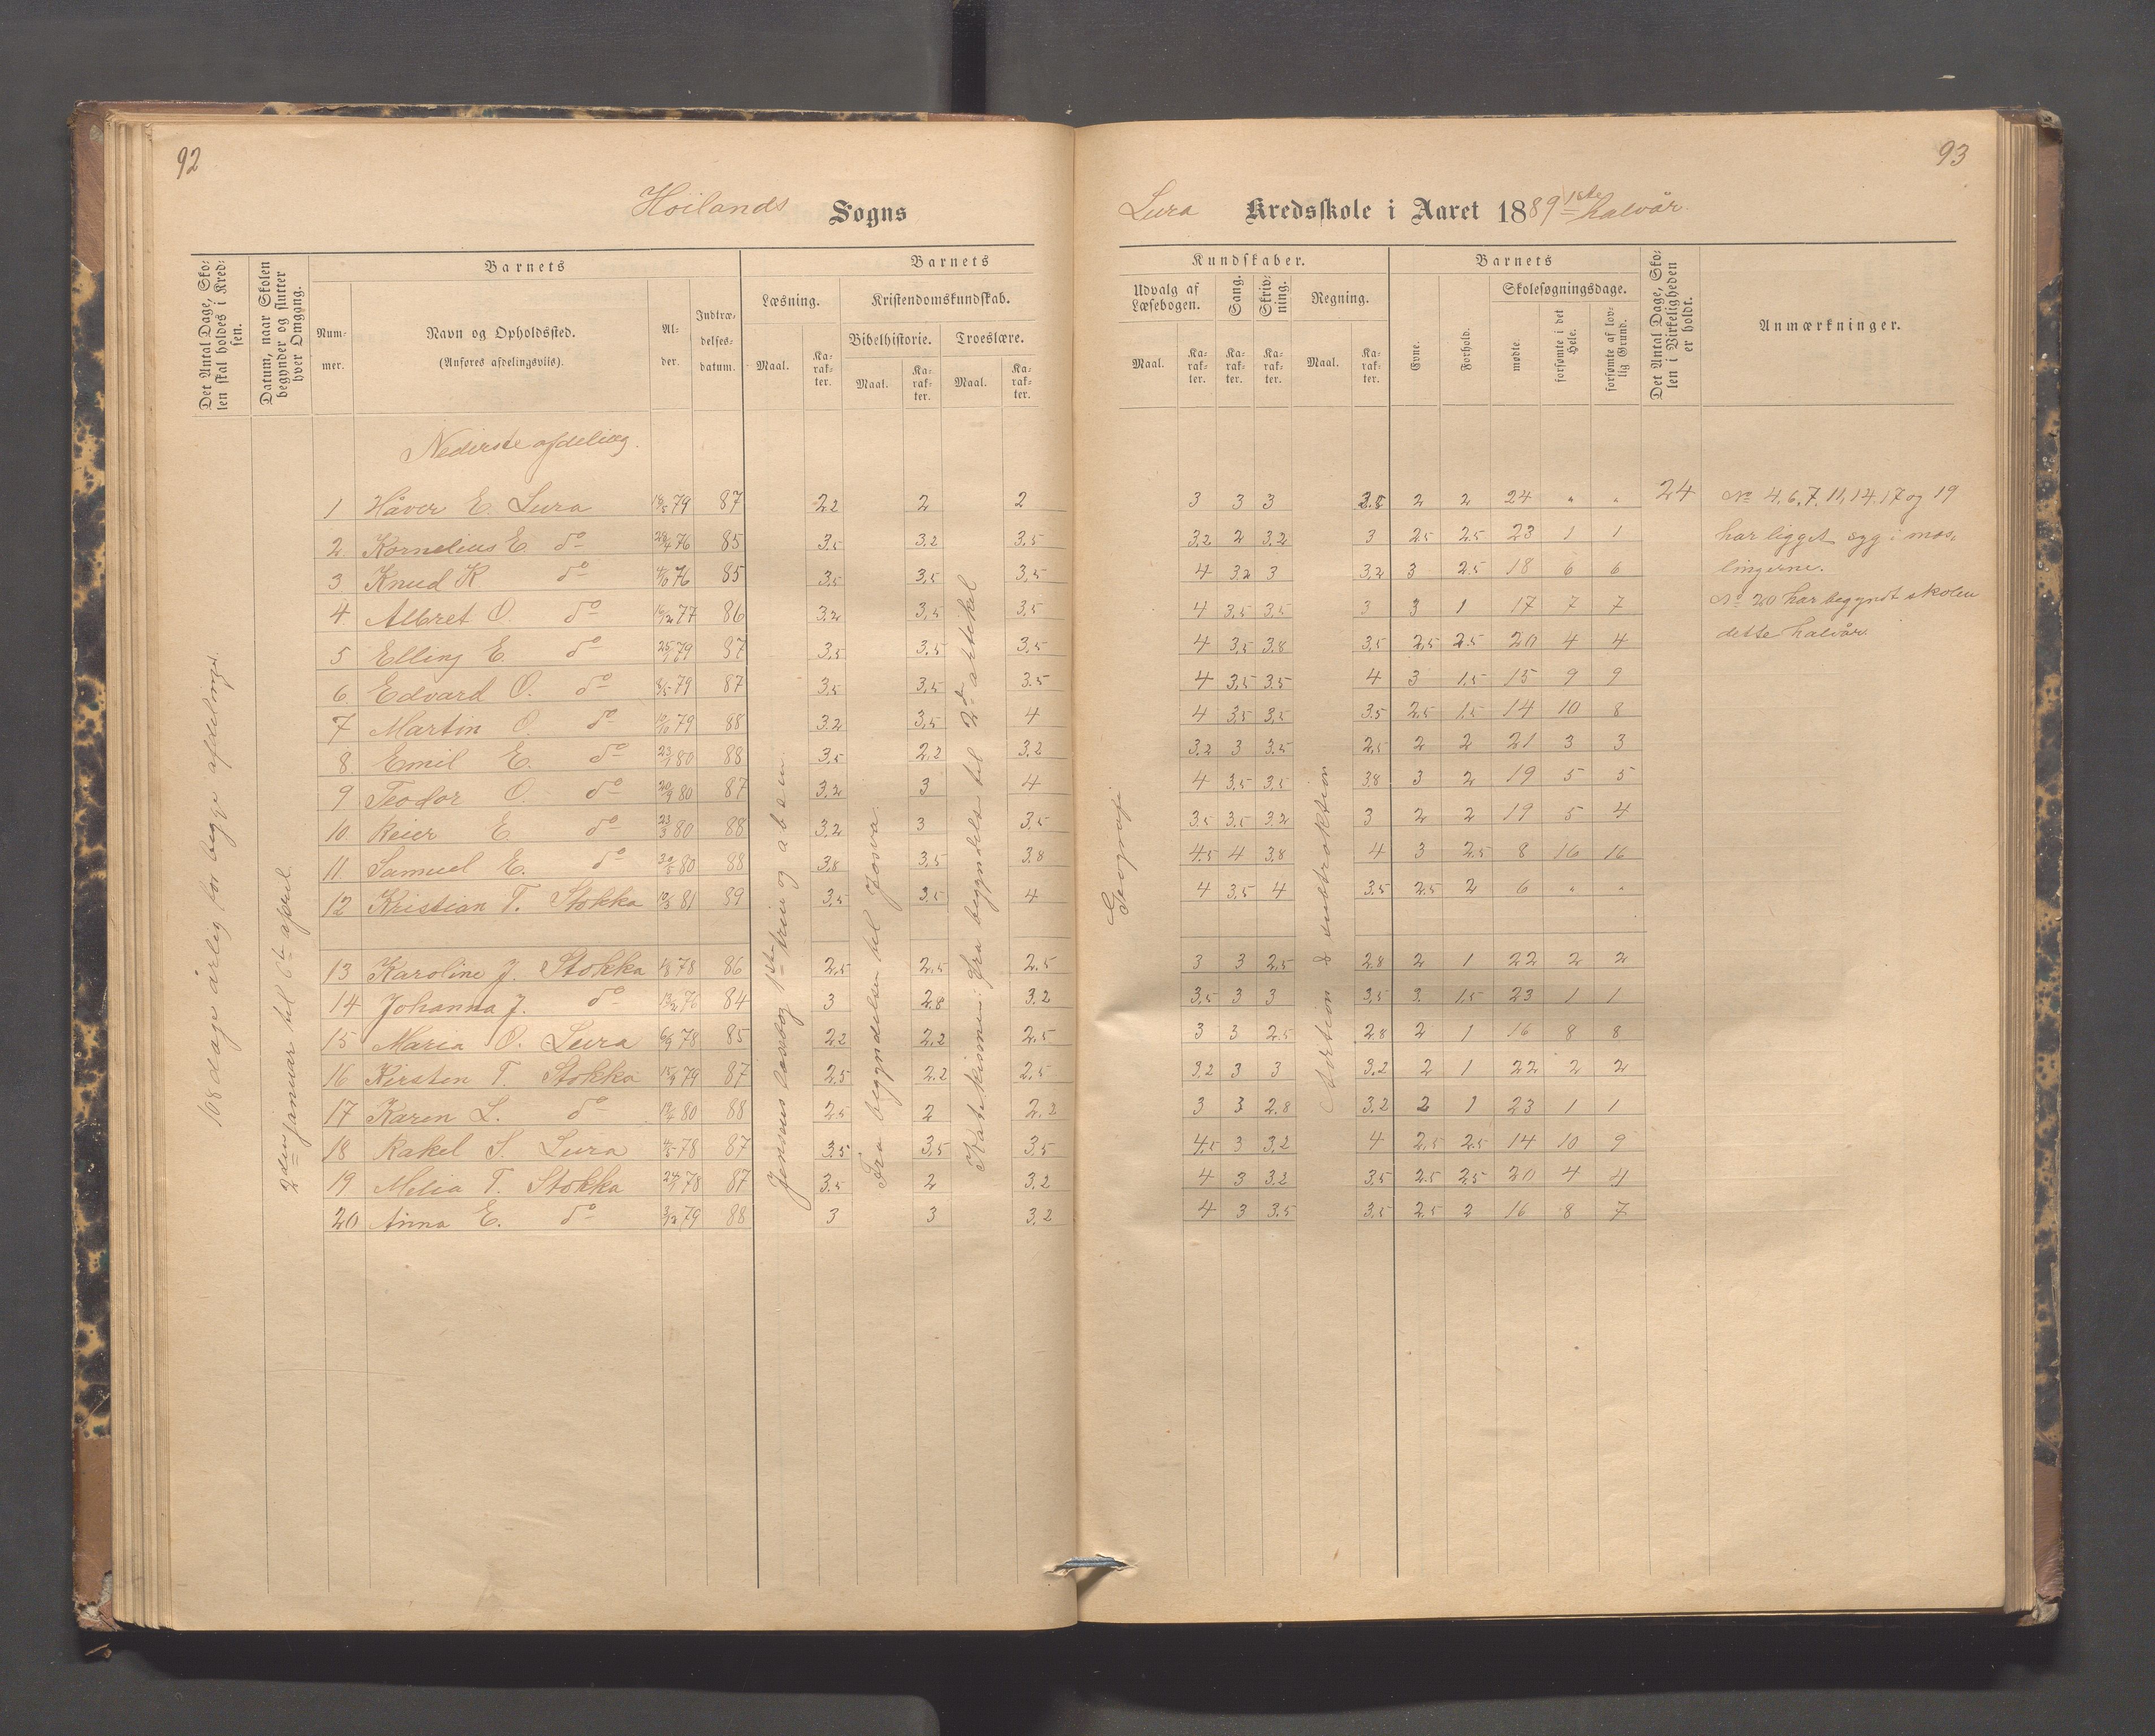 92
Höilands Sogns
Det Antal Dage, Sko-
len skal holdes i Kred-
sen.
Datum, naar Skolen
begynder og slutter
hver Omgang.
Barnets
Num-
mer.
Navn og Opholdssted.
(Anføres afdelingsviis).
Al-
der.
Indtræ-
delses-
datum.
Barnets
Læsning.
Maal.
Ka-
rak-
ter.
Kristendomskundskab.
Bibelhistorie.
Maal.
Ka-
rak-
ter.
Troeslære.
Maal.
Ka-
rak-
ter.
108 dage årlig for begge afdelinger.
2den januar til 6te april.
Jensens læsebog 1ste trin og abc'en
Fra begyndelsen til Josva
Katekismen: fra begyndelse til 2den artikel
Nederste afdeling.
1 Håver E. Lura 79 87 2.2 2 2
2 Kornelius E. do 76 85 3.5 3.2 3.5
3 Knud K do 76 85 3.5 3.5 3.5
4 Albret O. do 77 86 3.2 3.5 3.5
5 Elling E. do 79 87 3.5 3.5 3.5
6 Edvard O. do 79 87 3.5 3.5 3.5
7 Martin O. do 79 88 3.2 3.5 4
8 Emil E. do 80 88 3.5 2.2 3.2
9 Teodor O. do 80 87 3.2 3 4
10 Reier E. do 80 88 3.2 3 3.5
11 Samuel E. do 80 88 3.8 3.5 3.8
12 Kristian T. Stokka 81 89 3.5 3.5 4
13 Karoline J. Stokka 78 86 2.5 2.5 2.5
14 Johanna J. do 76 84 3 2.8 3.2
15 Maria O. Lura 78 85 2.2 2.2 2.5
16 Kirsten T. Stokka 79 87 2.5 2.2 2.5
17 Karen L. do 80 88 2.5 2 2.2
18 Rakel S. Lura 78 87 3.5 3.5 3.5
19 Melia T. Stokka 78 87 3.5 2 3.2
20 Anna E. do 79 88 3 3 3.2
93
Lura Kredsskole i Aaret 1889 1ste halvår.
Kundskaber.
Udvalg af
Læsebogen.
Maal.
Ka-
rak-
ter.
Sang.
Ka-
rak-
ter.
Skriv-
ning.
Ka-
rak-
ter.
Regning.
Maal.
Ka-
rak-
ter.
Barnets
Evne.
Forhold.
Skolesøgningsdage.
mødte.
forsømte i det
Hele.
forsømte af lov-
lig Grund.
Det Antal Dage, Sko-
len i Virkeligheden
er holdt.
Anmærkninger.
Geografi
Addition & subtraktion
3 3 3 2.8 2 2 24 " " 24
3.2 2 3.2 3 2.5 2.5 23 1 1
4 3.2 3 3.2 3 2.5 18 6 6
4 3.5 3.5 3 3 1 17 7 7
4 3.5 3.8 3.5 2.5 2.5 20 4 4
4 3.5 3.5 4 3 1.5 15 9 9
4 3.5 3.5 3.5 2.5 1.5 14 10 8
3.2 3 3.5 2.5 2 2 21 3 3
4 3.5 3.5 3.8 3 2 19 5 5
3.5 3.5 3.2 3 2 2 19 5 4
4.5 4 3.8 4 3 2.5 8 16 16
4 3.5 4 3.5 2.5 2 6 " "
3 3 2.5 2.8 2 1 22 2 2
3.5 3 3 3.5 3 1.5 23 1 1
3 3 2.5 2.8 2 1 16 8 8
3.2 3 3 3.2 2 1 22 2 2
3 3 2.8 3.2 2 1 23 1 1
4.5 3 3.2 4 2.5 2.5 14 10 9
4 3 3.2 3.5 2.5 2.5 20 4 4
4 3 3.5 3.5 2.5 2 16 8 7
No 4, 6, 7, 11, 14, 17 og 19
har ligget syg i mæs-
lingerne.
No 20 har begyndt skolen
dette halvår.